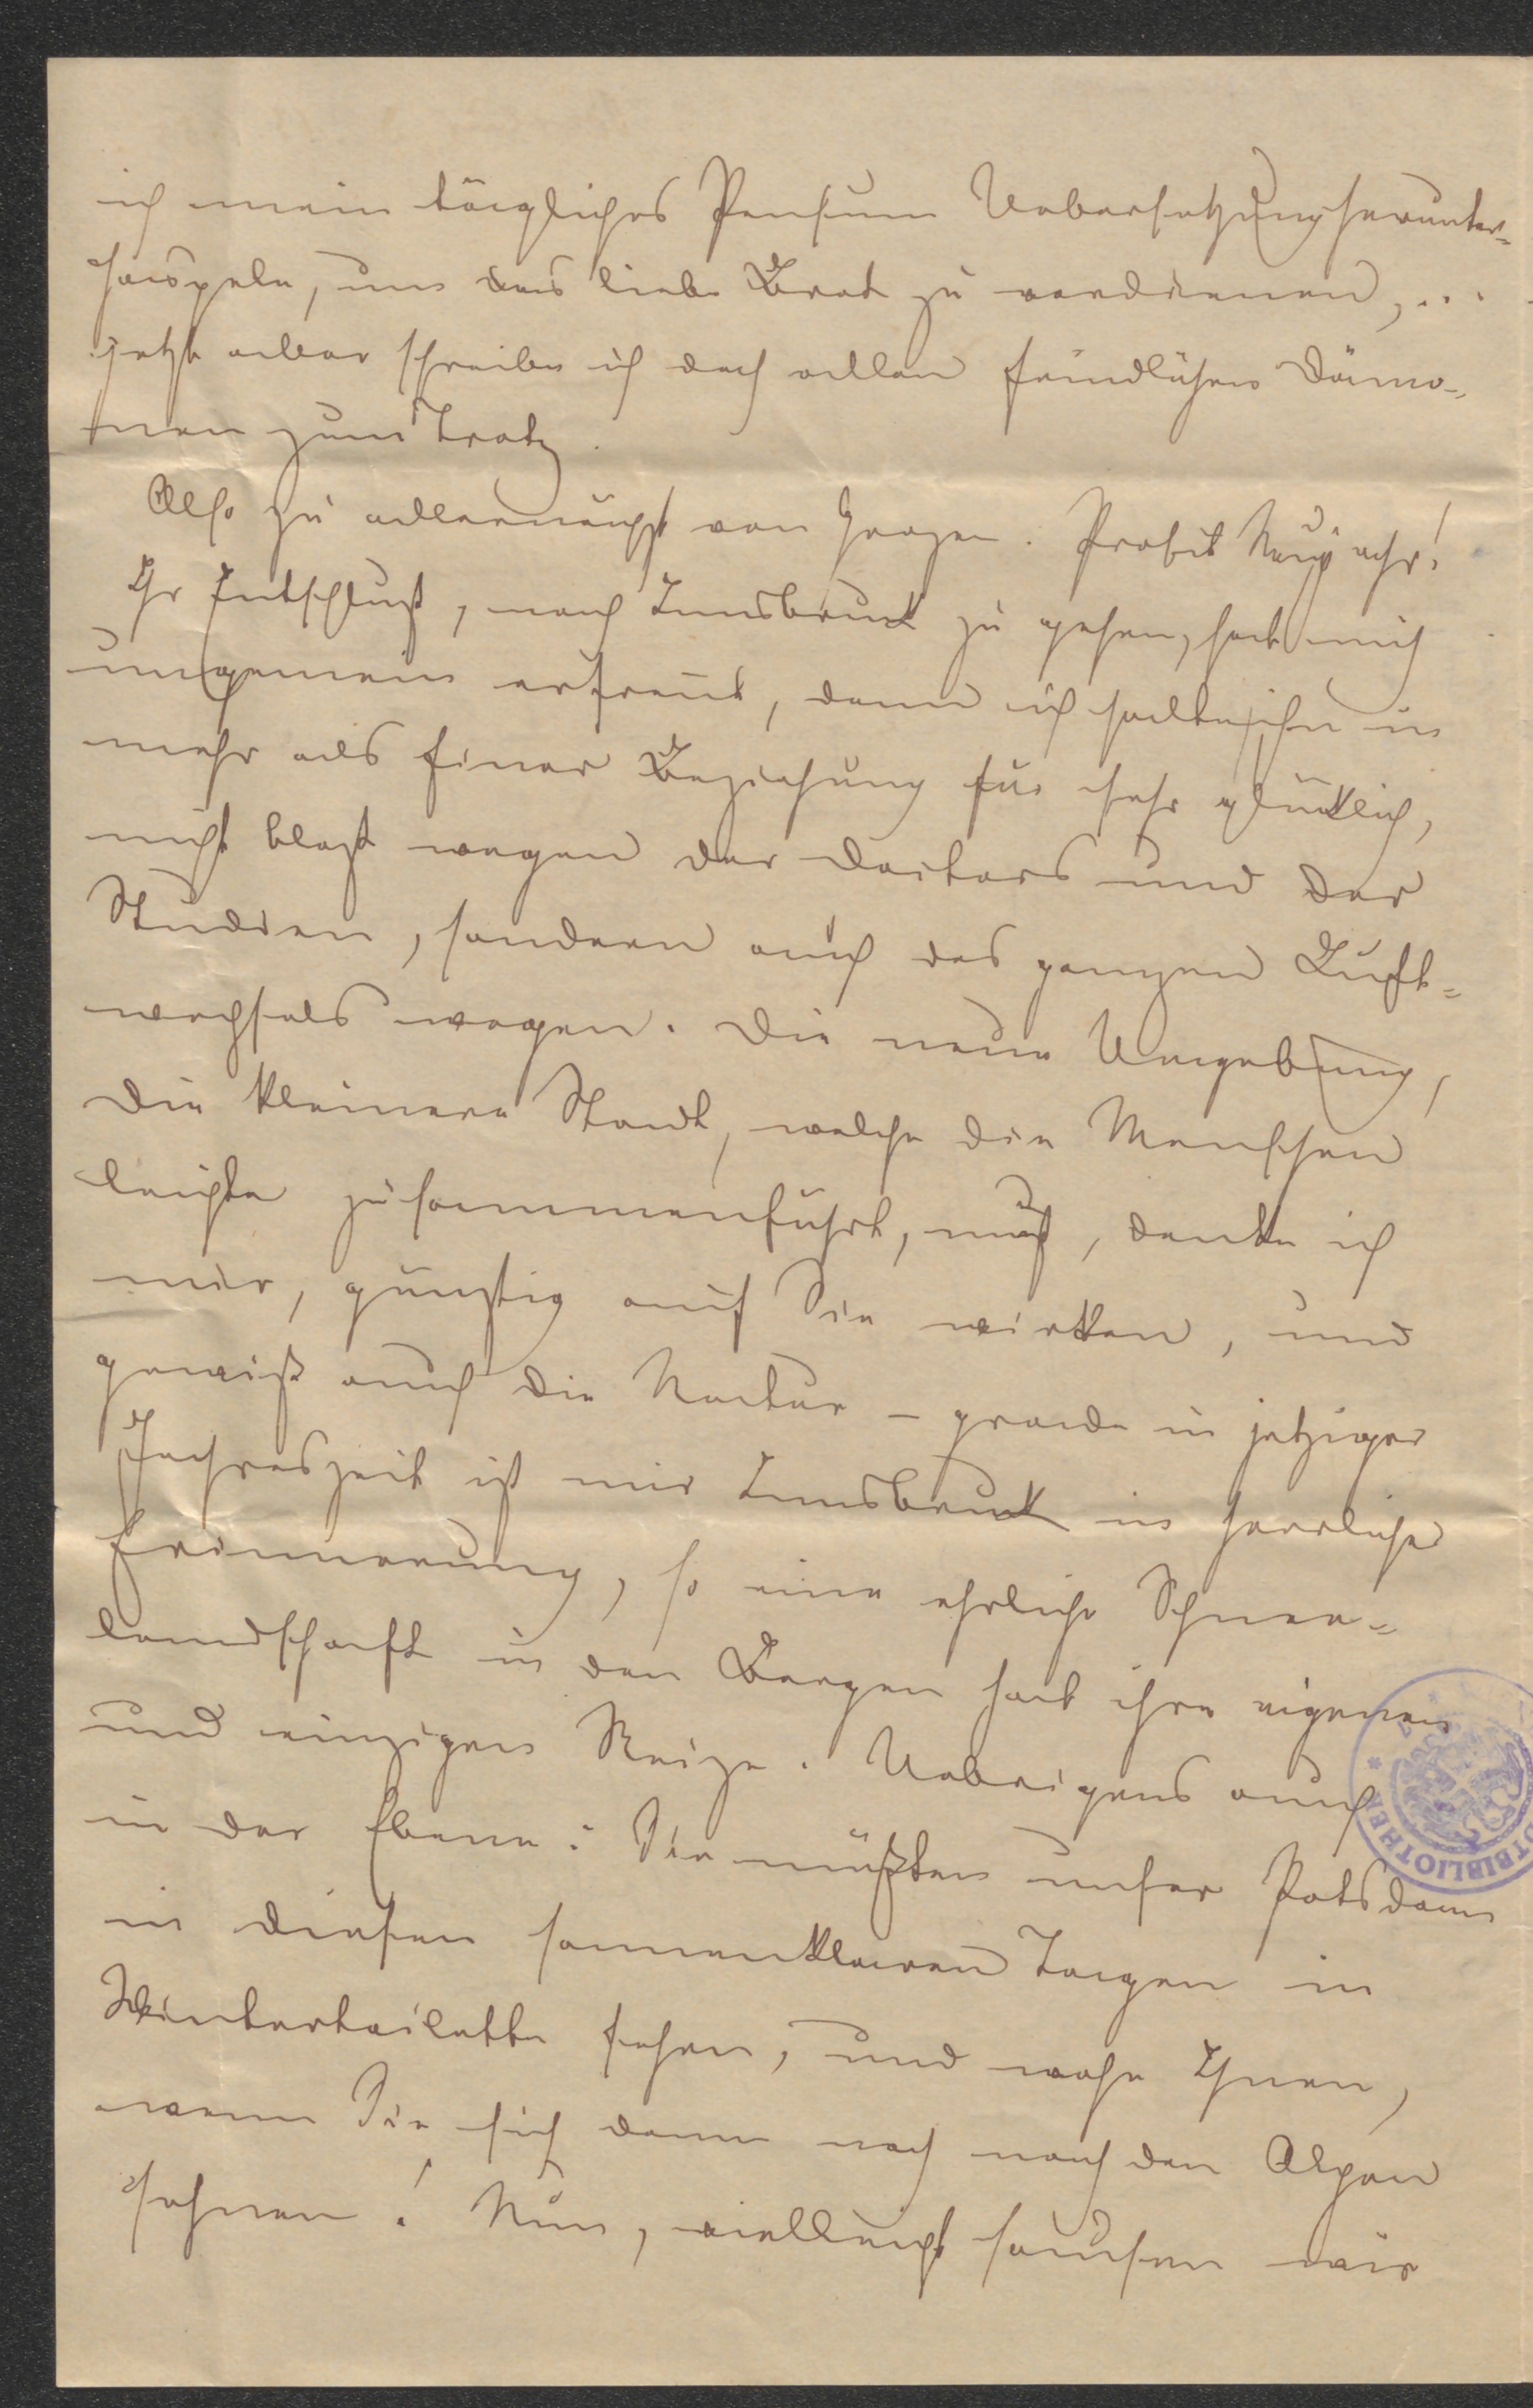 ich mein tägliches Pensum Uebersetzung herunter-
haspeln, um das liebe Brot zu verdienen, ...
jetzt aber schreibe ich doch allen feindlichen Dämo-
nen zum Trotz.
Also zu allernächst von Herzen: Prosit Neujahr!
Ihr Entschluß, nach Innsbruck zu gehen, hat mich
ungemein erfreut, denn ich halte ihn in
mehr als Einer Beziehung für sehr glücklich,
nicht bloß wegen der Doctors und der
Studien, sondern auch des ganzen Luft-
wechsels wegen. Die neue Umgebung,
die kleinere Stadt, welche die Menschen
leichter zusammenführt, muß, denke ich
mir, günstig auf Sie wirken, und
gewiß auch die Natur – grade in jetziger
Jahreszeit ist mir Innsbruck in herrlicher
Erinnerung, so eine ehrliche Schnee-
landschaft in den Bergen hat ihre eigenen
und einzigen Reize. Uebrigens auch
in der Ebene: Sie müßten unser Potsdam
in diesen sonnenklaren Tagen in
Wintertoilette sehen, und wehe Ihnen,
wenn Sie sich dann noch nach den Alpen
sehnen! Nun, vielleicht tauschen wir